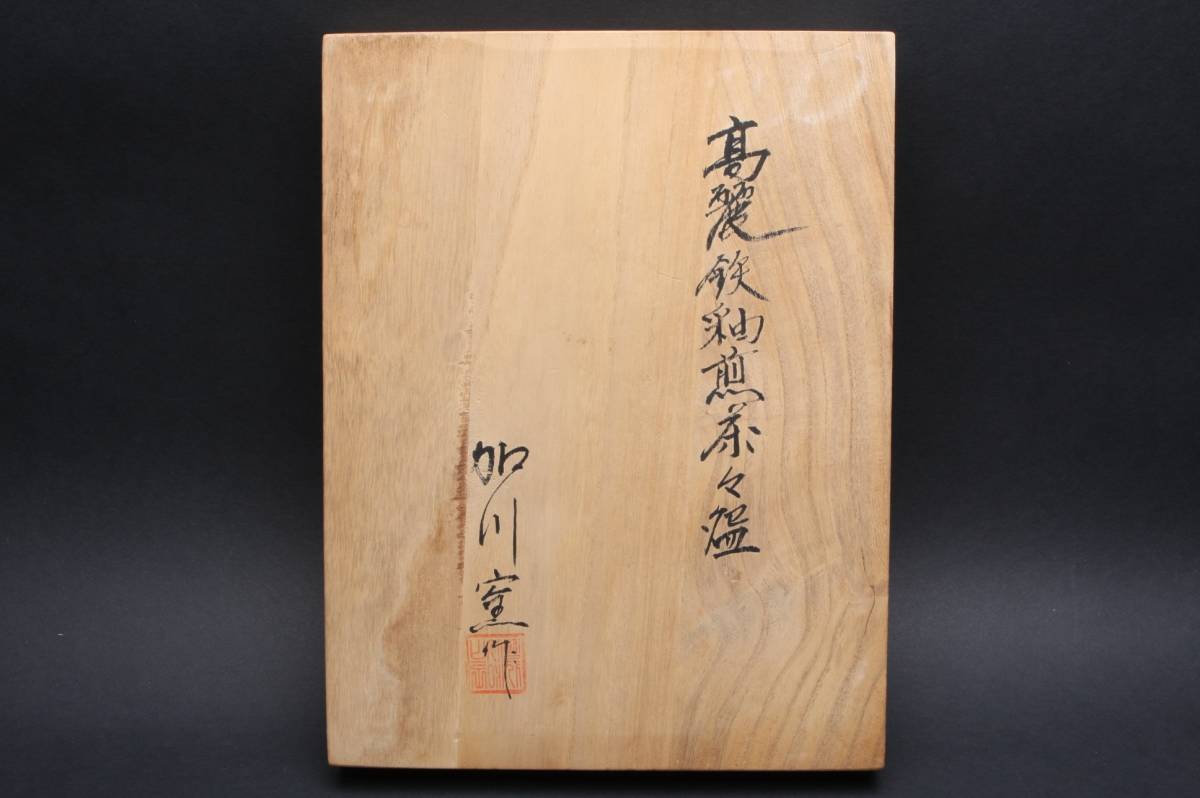 高麗鉄釉煎茶々盌
加川窯作